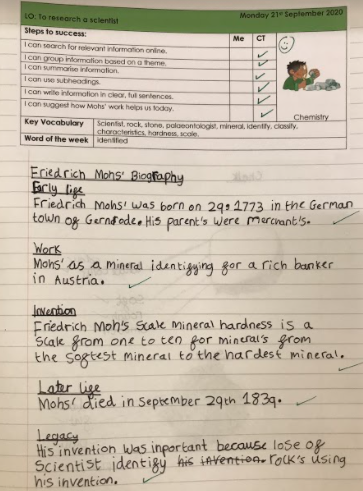 LO: To research a scientist Monday 21st September 2020
Steps to success: Me CT
I can search for relevant information online.
I can group information based on a theme.
I can summarise information.
I can use subheadings.
I can write information in clear, full sentences.
I can suggest how Mohs' work helps us today.
Chemistry
Key Vocabulary Scientist, rock, stone, palaeontologist, mineral, identify, classify, characteristics, hardness, scale.
Word of the week identified
Friedrich Mohs' Biography
Early life
Friedrich Mohs' was born on 29, 1773 in the German
town of Gernsode. His parent's were merchant's.
Work
Mohs' as a mineral identifying for a rich banker
in Austria.
Invention
Friedrich Moh's scale mineral hardness is a
scale from one to ten for mineral's from
the softest mineral to the hardest mineral.
Later life
Mohs' died in September 29th 1839.
Legacy
His invention was inportant because lose of
Scientist identify his invention. rock's using
his invention.